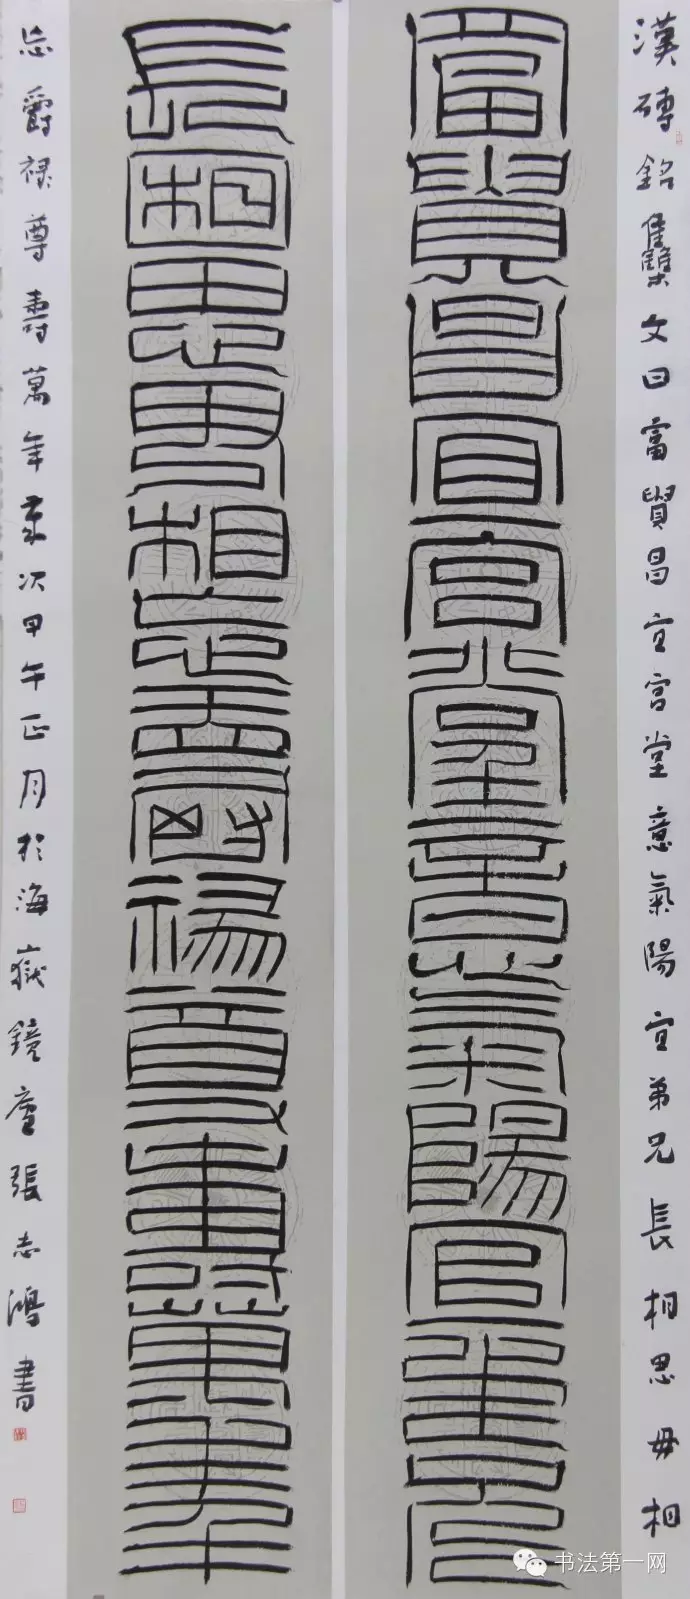 漢磚銘集文曰富貴昌宜宮堂意氣陽宜弟兄長相思毋相
富貴昌宜宮堂意氣陽宜弟兄
長相思毋相忘爵祿尊壽萬年
忘爵祿尊壽萬年歲次甲午正月於海嶽鏡廬張志鴻書
书法第一网